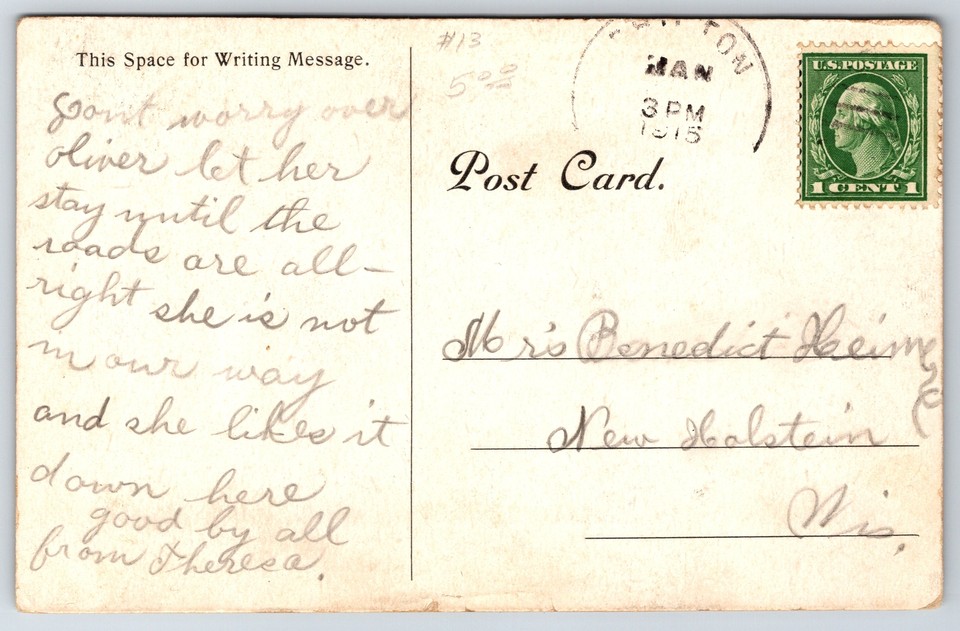 This Space for Writing Message.
Dont worry over
oliver let her
stay until the
roads are all-
right she is not
in our way
and she likes it
down here
good by all
from Theresa.
#13
5 00
TON
JAN
3 PM
1915
U.S. POSTAGE
1 CENT 1
Post Card.
Mrs Benedict
New Holstein
Wis.